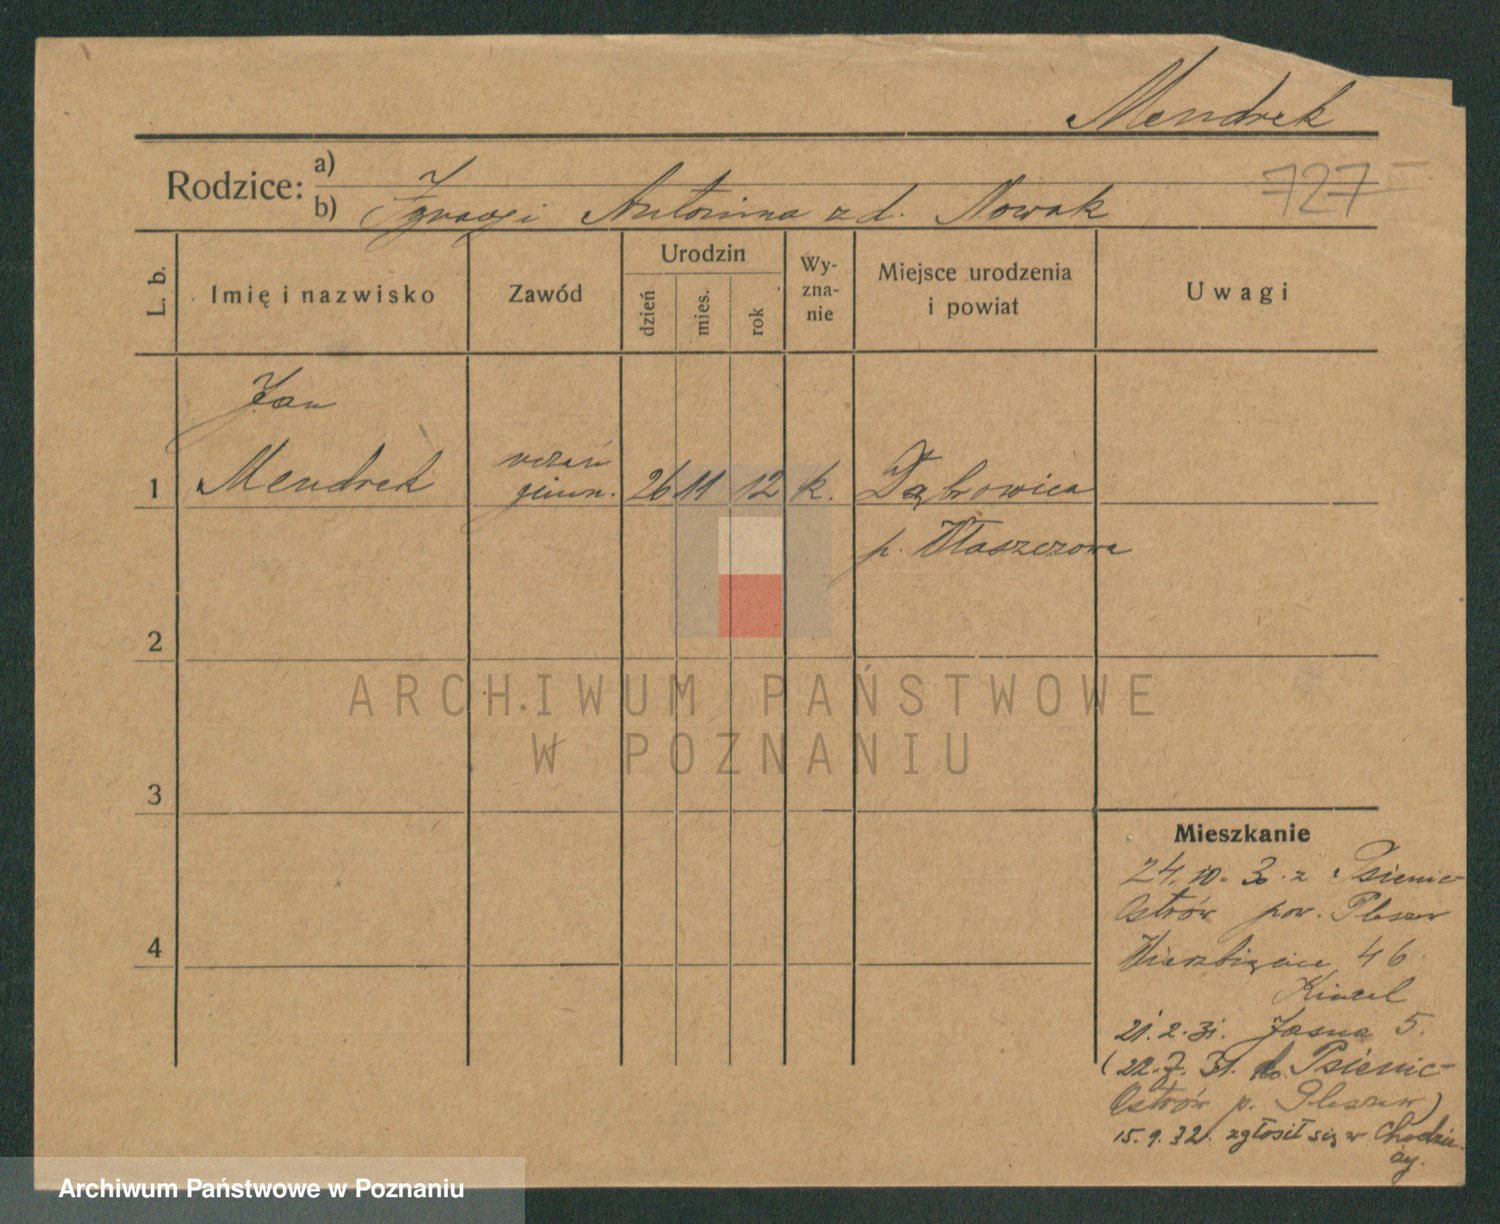 Mendrek
Rodzice:
a)
b) Ignacy i Antonina z d. Nowak
727
L. b.
Imię i nazwisko
Zawód
Urodzin
dzień
mies.
rok
Wy-
zna-
nie
Miejsce urodzenia
i powiat
Uwagi
Jan
1 Mendrek
uczeń
gimn.
26 11 12 k. Dąbrowica
p. Włoszczowa
2
3
4
ARCHIWUM PAŃSTWOWE
W POZNANIU
Mieszkanie
24. 10. 30. z Psienic-
Ostrów pow. Pleszew
Wierzbięcice 46.
21. 2. 31. Jasna 5.
(22. 7. 31. do Psienic-
Ostrów p. Pleszew)
15. 9. 32. zgłosił się w Chodzie-
ży.
Archiwum Państwowe w Poznaniu